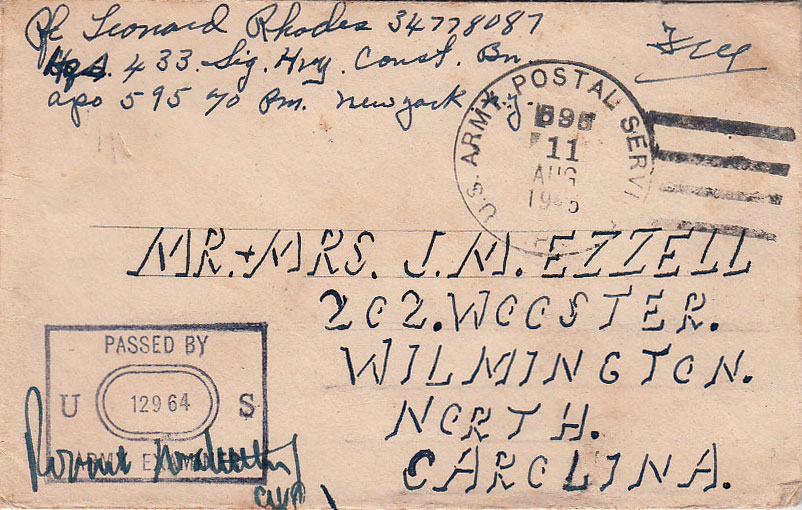 Pfc Leonard Rhodes 34778087
Hqs. 433. Sig. Hvy. Const. Bn.
apo 595 % Pm. New york ny.
Free
U.S. ARMY POSTAL SERVI
595
11
AUG
1945
MR. + MRS. J. M. EZZELL
202. WOOSTER.
WILMINGTON.
NORTH.
CAROLINA.
PASSED BY
U 12964 S
ARMY EXAMINER